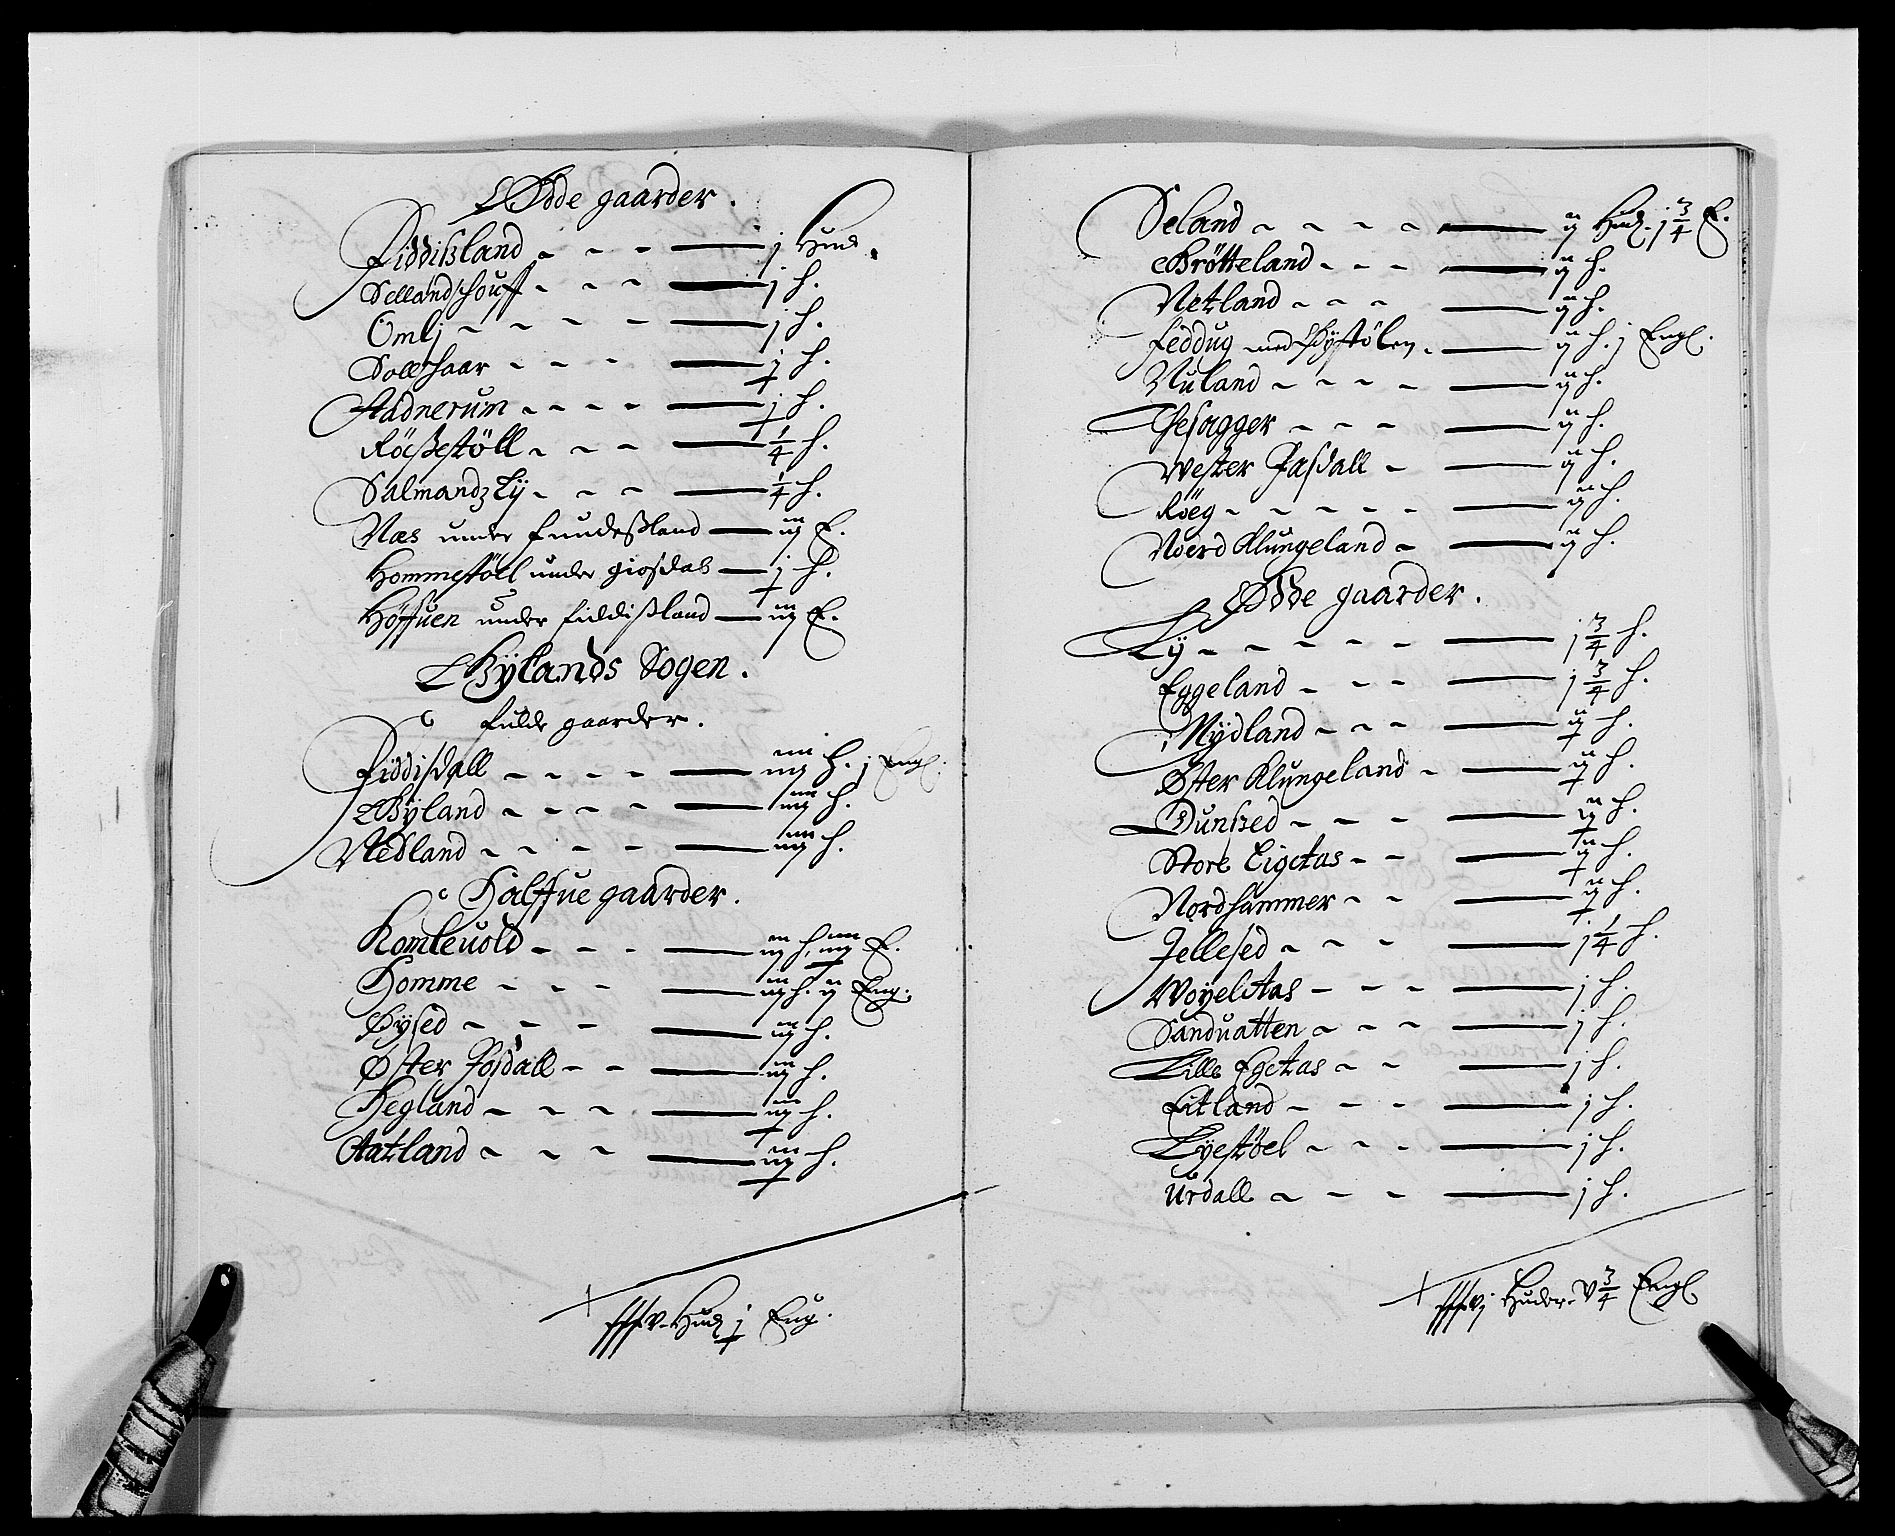 Øde gaarder.
Fiddißland - - - — j Hud.
Sellandshouff - - - — j h.
Omlj - - - - — j h.
Sollshaar - - - — j h.
Stadnerum - - - - — j h.
Røeßestöll - - - — 1/4 h.
Salmandz Lÿ - - - — 1/4 h.
Næs under Fundeßland — iij E.
Hommestöll under giosdal — j h.
Höffuen under fiddißland — iij E.
Bÿlands Sogen.
fulde gaarder.
Fiddisdall - - - - — iiij h. j Engl.
Bÿland - - - - — iiij h.
Nedland - - - - — iiij h.
Halffue gaarder.
Komleuold - - - — iij h. iiij E.
Homme - - - — iij h. ij Eng.
Øÿsed - - - — iij h.
Øster Josdall - - — iij h.
Hegland - - - - — iij h.
Aatland - - - — iij h.
Hud j Eng.
Seland - - - - — ij Hud. j 3/4 E.
Brötteland - - - — ij h.
Netland - - - — ij h.
Feddug med Bÿstölen. — ij h. j Engl.
Nuland - - - - — ij h.
Gesagger - - - — ij h.
Wester Jasdall - — ij h.
Röeg - - - - - — ij h.
Noerd Klungeland - — ij h.
Øde gaarder.
Lÿ - - - - - — j 3/4 h.
Eggeland - - - — j 3/4 h.
Mÿdland - - - — ij h.
Øster Klungeland - — ij h.
Dunßed - - - - — ij h.
Store Eigetas - - — ij h.
Nordhammer - - — ij h.
Jellesed - - - — j 1/4 h.
Woÿelstas - - - — j h.
Sanduatten - - - — j h.
Lille Egetas - - — j h.
Eitland - - - — j h.
Lÿestöel - - - — j h.
Urdall - - - — j h.
Huder. v 3/4 Engl